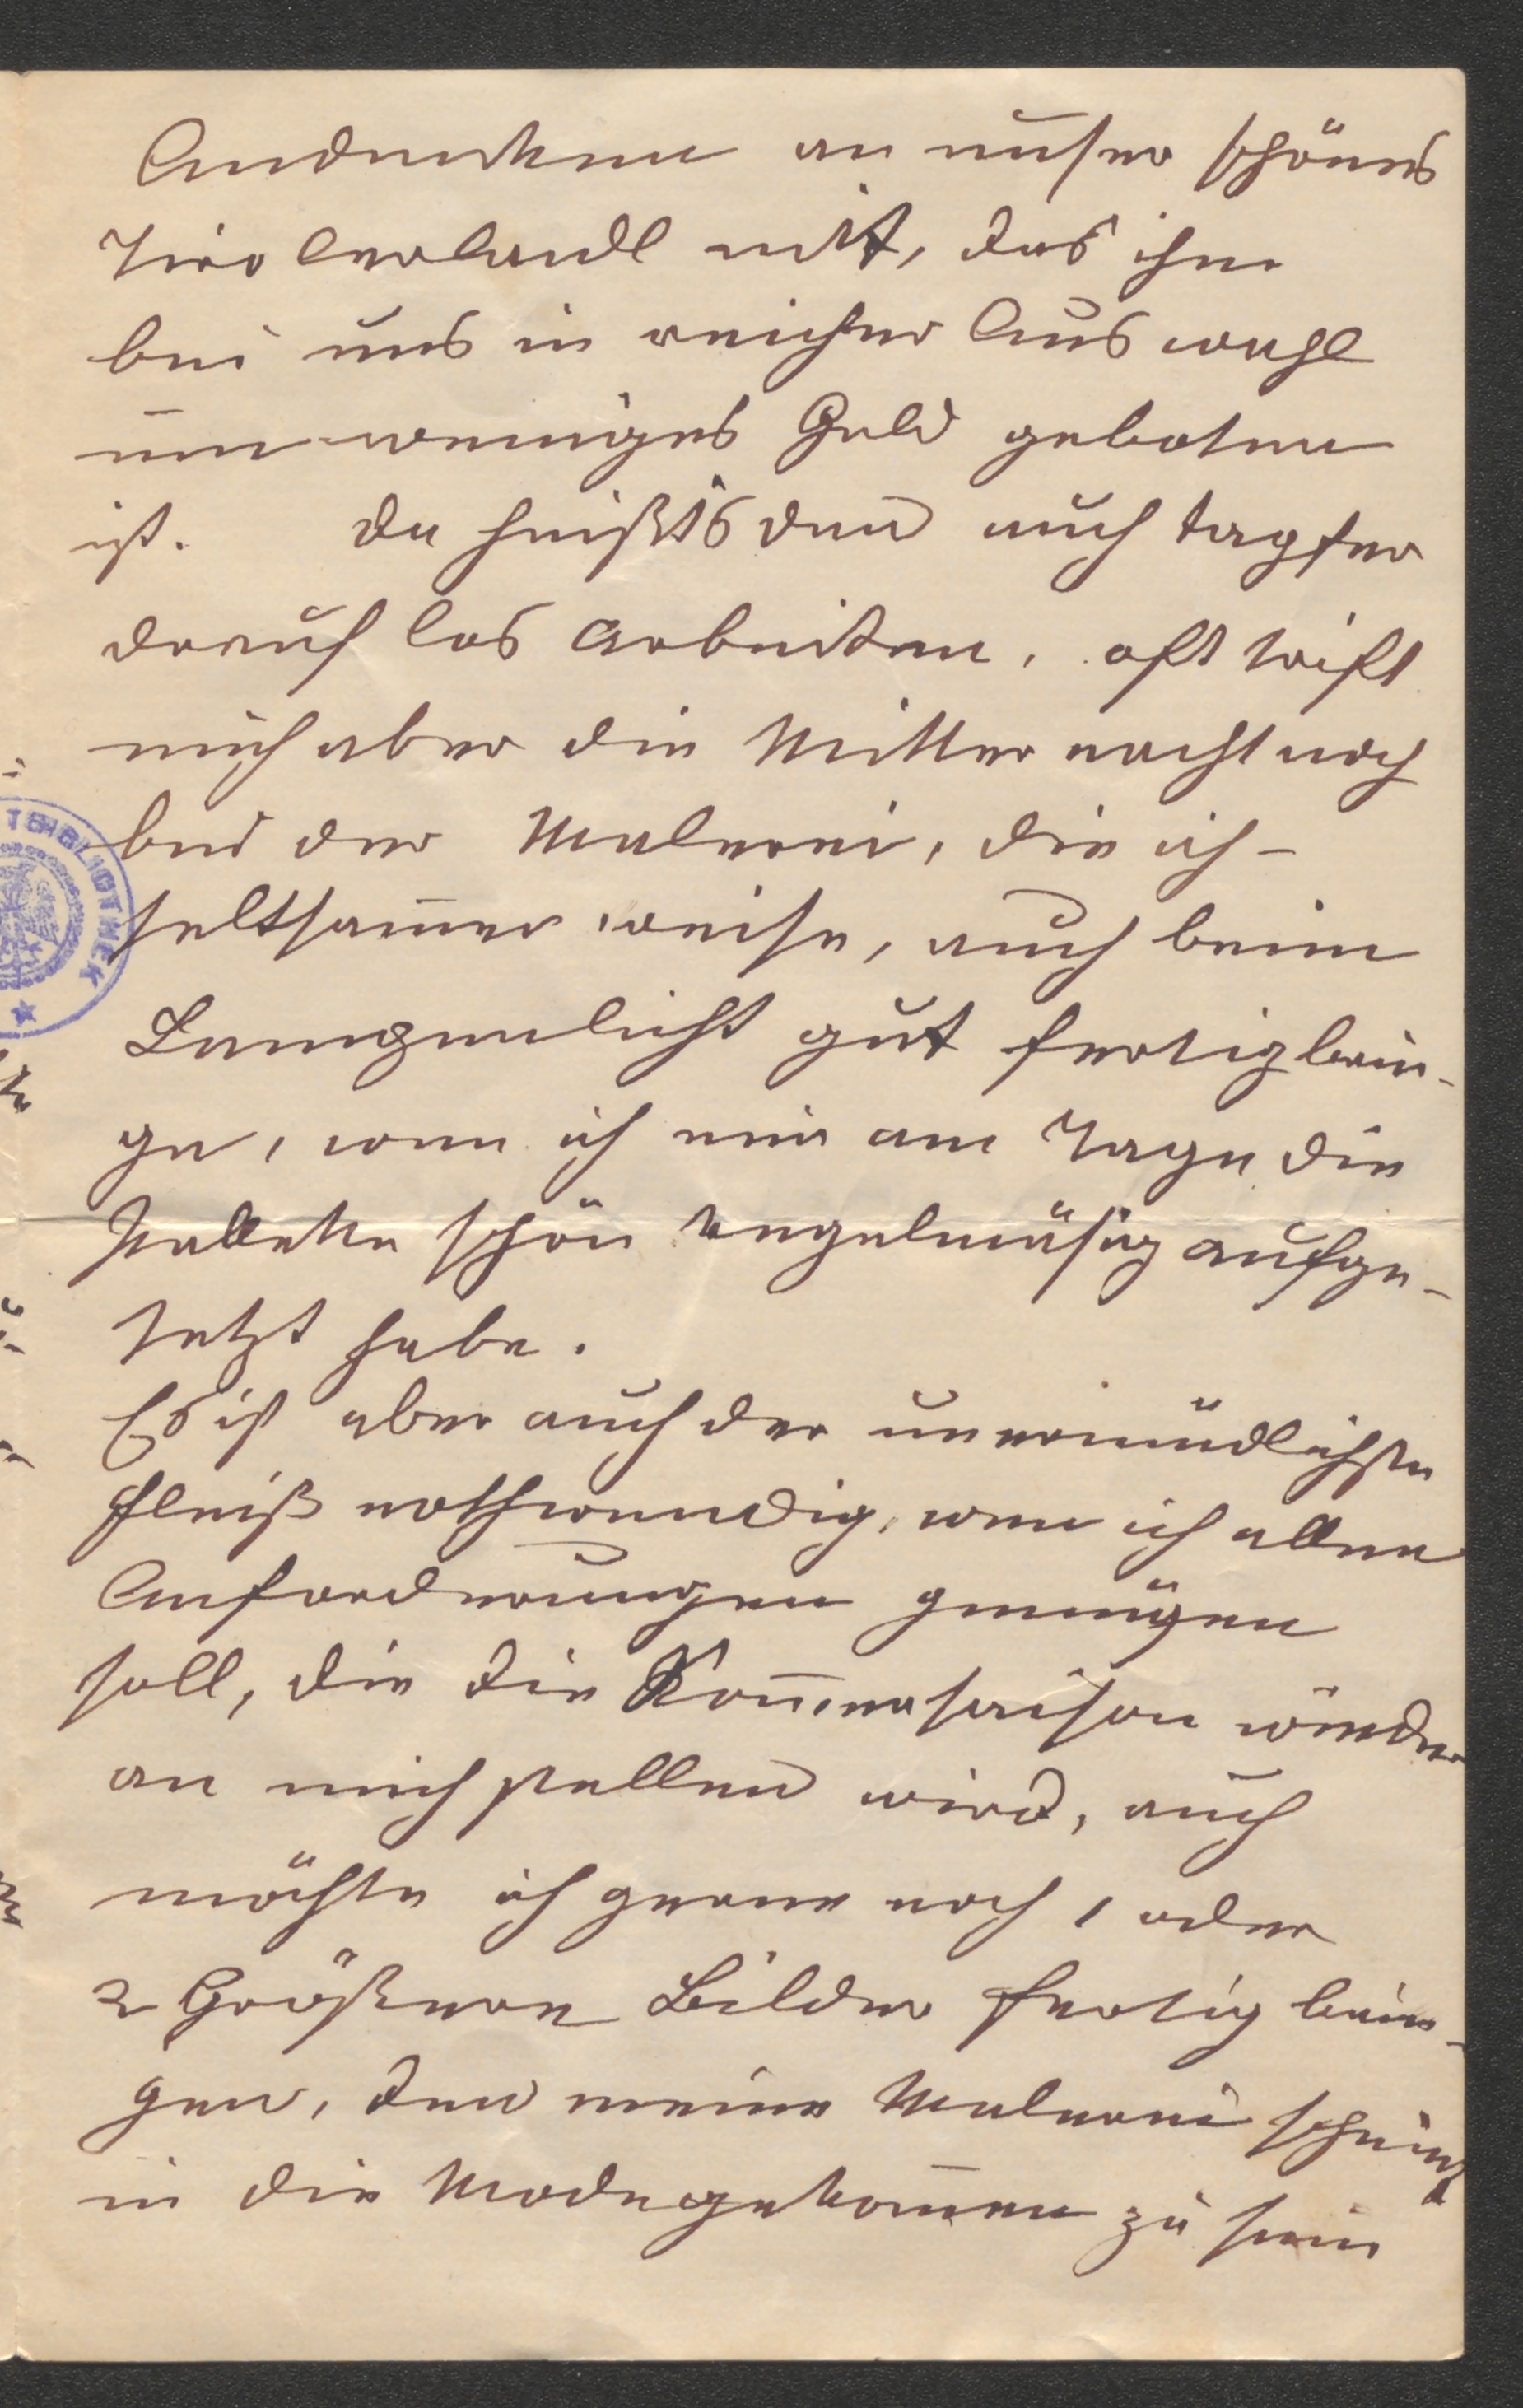 Andenken an unser schönes
Tirolerlandl mit, das ihm
bei uns in reicher Auswahl
um weniges Geld geboten
ist. Da heißt's den̄ auch tapfer
drauf los arbeiten, oft trift
mich aber die Mitternacht noch
bei der Malerei, die ich –
seltsam̄er weise, auch beim
Lampenlicht gut fertigbrin-
ge, wenn ich mir am Tage die
Pallette schön regelmäsig aufge-
setzt habe.
Es ist aber auch der unermüdlichste
Fleiß nothwendig, wenn ich allen
Anforderungen genügen
soll, die die Som̄ersaison wieder
an mich stellen wird, auch
möchte ich gerne noch 1 oder
2 Größere Bilder fertig brin-
gen, den̄ meine Malerei scheint
in die Mode gekom̄en zu sein
TSBIBLIOTHEK